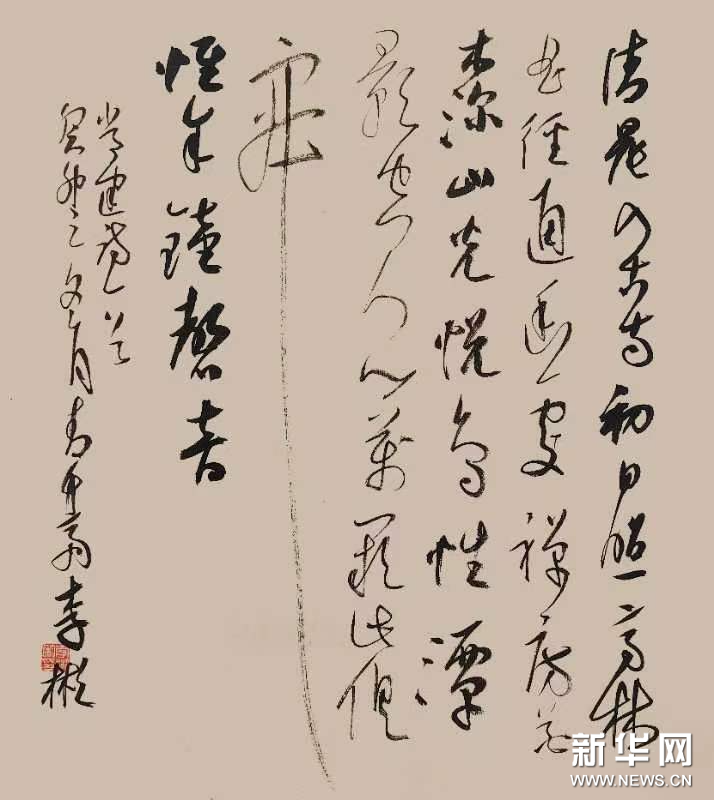 清晨入古寺初日照高林
曲徑通幽處禪房花
木深山光悦鳥性潭
影空人心萬籟此俱
寂
惟余鐘磬音
常建詩一首
癸卯之冬月 李彬
新华网
WWW.NEWS.CN